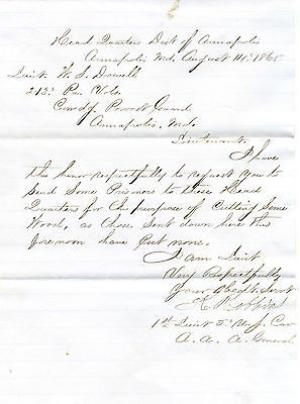 Head Quarters Dist of Annapolis
Annapolis Md. August 1865
Lieut. W. S. Dowell
213" Pa Vols.
Comdg. Provost Guard
Annapolis, Md.
Lieutenant
I have
the honor respectfully to request you to
send Some Prisoners to these Head
Quarters for the purpose of Cutting Some
Wood, as those Sent down here this
forenoon have Cut none.
I am Lieut
Very Respectfully
Your Obedt Servt
1st Lieut 5" U.S. Cav
A. A. A. General